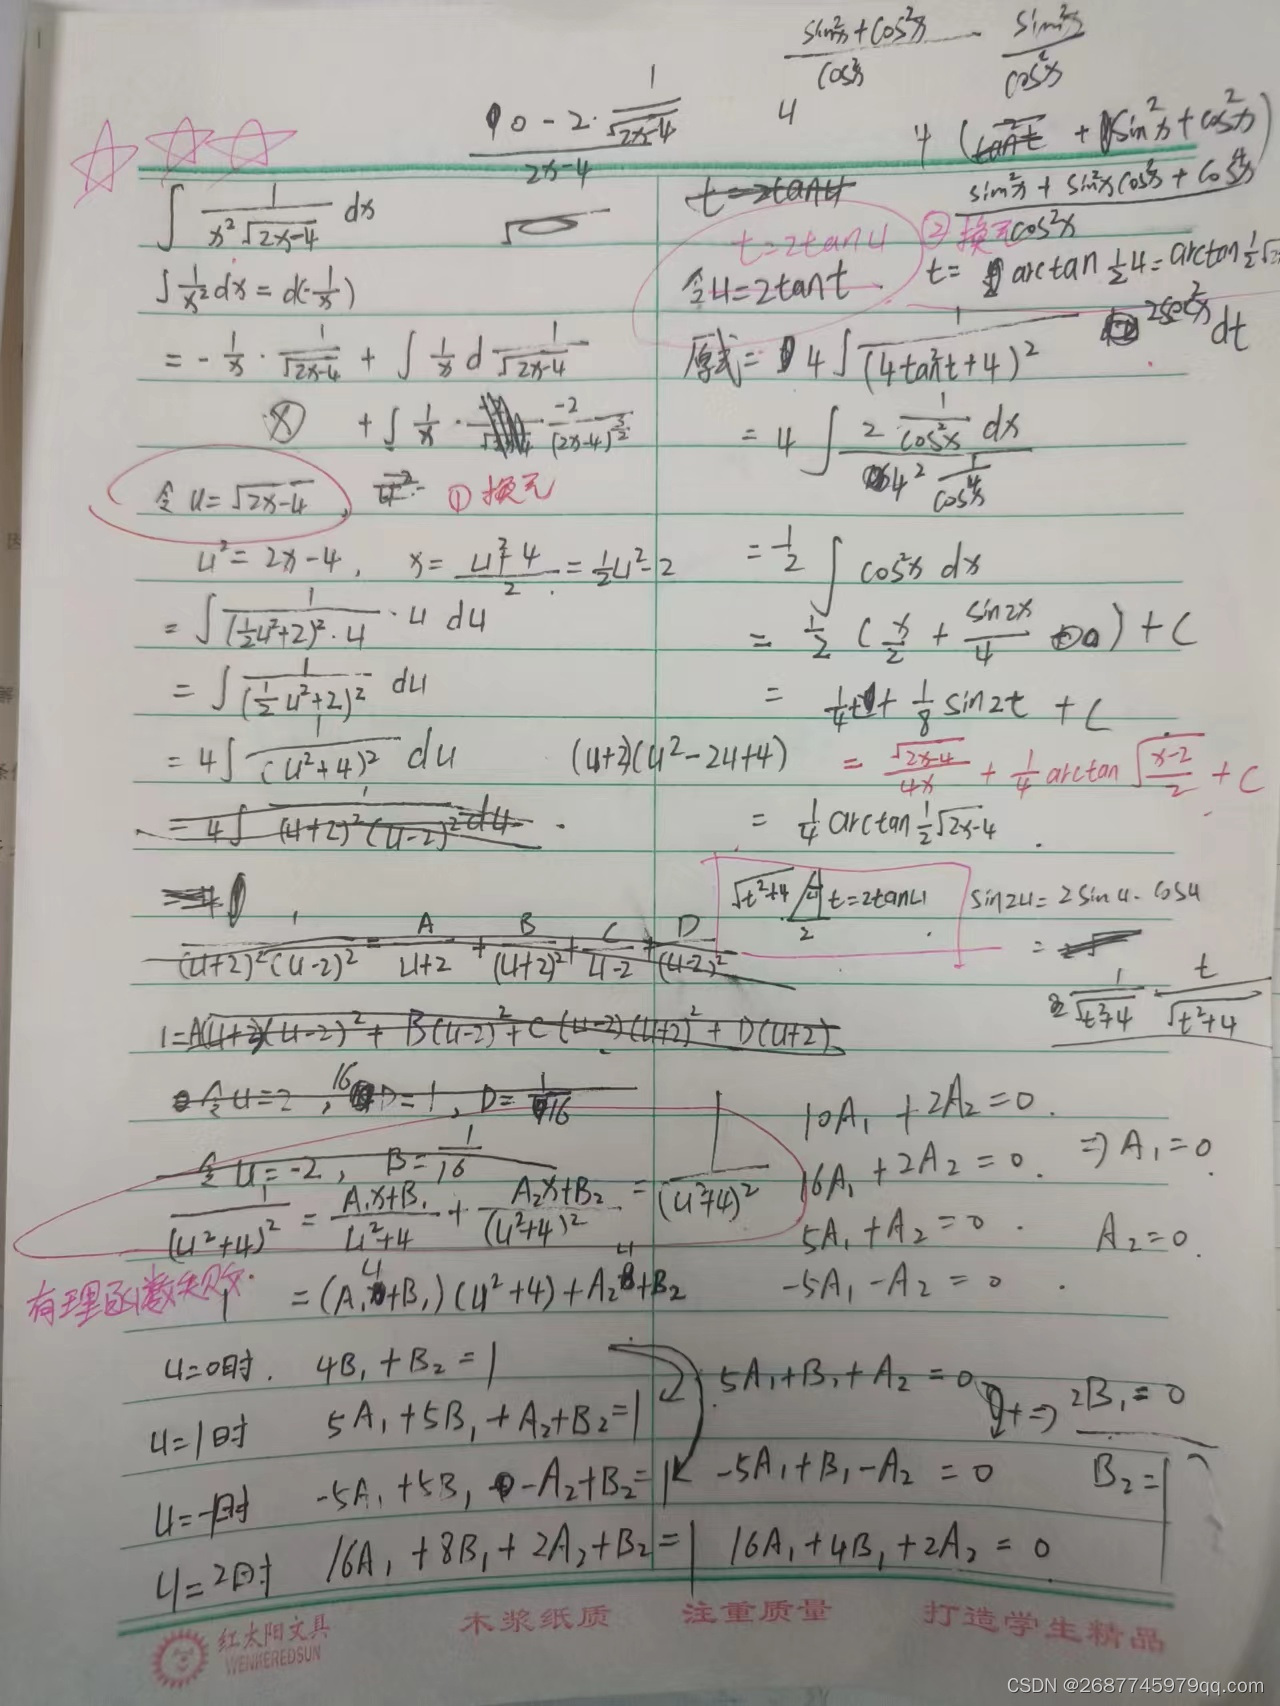 sin²x+cos²x / cos²x - sin²x / cos²x
0-2·1/√(2x-4) / 2x-4
4
4 ( + sin²x+cos²x)
sin²x+sin²xcos²x+cos⁴x / cos²x
∫ 1/(x²√(2x-4)) dx
∫ 1/x² dx = d(-1/x)
= -1/x · 1/√(2x-4) + ∫ 1/x d 1/√(2x-4)
+∫ 1/x · -2/(2x-4)^(3/2)
令 u=√(2x-4) ①换元
u²=2x-4, x= = ½u²-2
= ∫ 1/((½u²+2)²·u) ·u du
= ∫ 1/(½u²+2)² du
= 4∫ 1/(u²+4)² du (u+2)(u²-2u+4)
= 4∫ 1/((u+2)²(u-2)²) du
1/((u+2)²(u-2)²) = A/(u+2) + B/(u+2)² + C/(u-2) + D/(u-2)²
1=A(u+2)(u-2)²+B(u-2)²+C(u-2)(u+2)²+D(u+2)
令u=2, 16D=1, D=1/16
令u=-2, B=1/16
1/(u²+4)² = (A₁x+B₁)/(u²+4) + (A₂x+B₂)/(u²+4)² = 1/(u²+4)²
有理函数失败
1 = (A₁u+B₁)(u²+4)+A₂u+B₂
u=0时. 4B₁+B₂=1
u=1时 5A₁+5B₁+A₂+B₂=1
u=-1时 -5A₁+5B₁-A₂+B₂=1
u=2时 16A₁+8B₁+2A₂+B₂=1
t=2tanu
t=2tanu ②换元
令u=2tant. t= arctan½u=arctan½√2
原式= 4∫ 1/(4tan²t+4)² 2sec²x dt
= 4∫ 2 1/cos²x dx / 4² 1/cos⁴x
= ½ ∫ cos²x dx
= ½ (x/2 + sin2x/4) + C
= ¼t + ⅛ sin2t + C
= √(2x-4)/4x + ¼ arctan√((x-2)/2) + C
= ¼ arctan½√(2x-4).
√(t²+4) t t=2tanu 2
sin2u=2sinu·cosu
=
2 1/√(t²+4) t/√(t²+4)
10A₁+2A₂=0.
16A₁+2A₂=0. ⇒A₁=0.
5A₁+A₂=0. A₂=0.
-5A₁-A₂=0.
5A₁+B₁+A₂=0 +⇒ 2B₁=0
-5A₁+B₁-A₂=0 B₂=1
16A₁+4B₁+2A₂=0
红太阳文具
WENKEREDSUN
木浆纸质 注重质量 打造学生精品
CSDN @2687745979qq.com